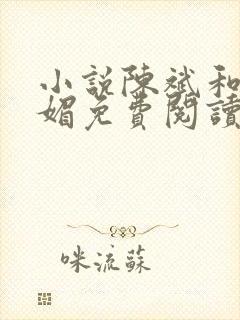 小說陳斌和
媚免費閱讀
咪流蘇